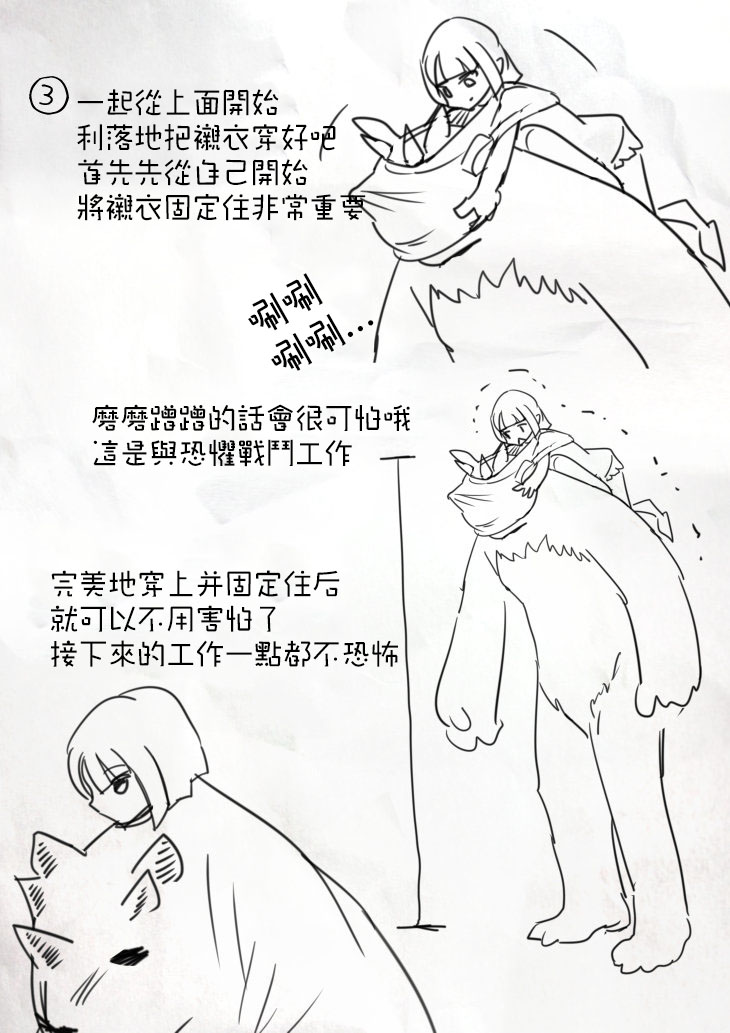 ③ 一起從上面開始
利落地把襯衣穿好吧
首先先從自己開始
將襯衣固定住非常重要
唰唰
唰唰...
磨磨蹭蹭的話會很可怕哦
這是與恐懼戰鬥工作
完美地穿上并固定住后
就可以不用害怕了
接下來的工作一點都不恐怖